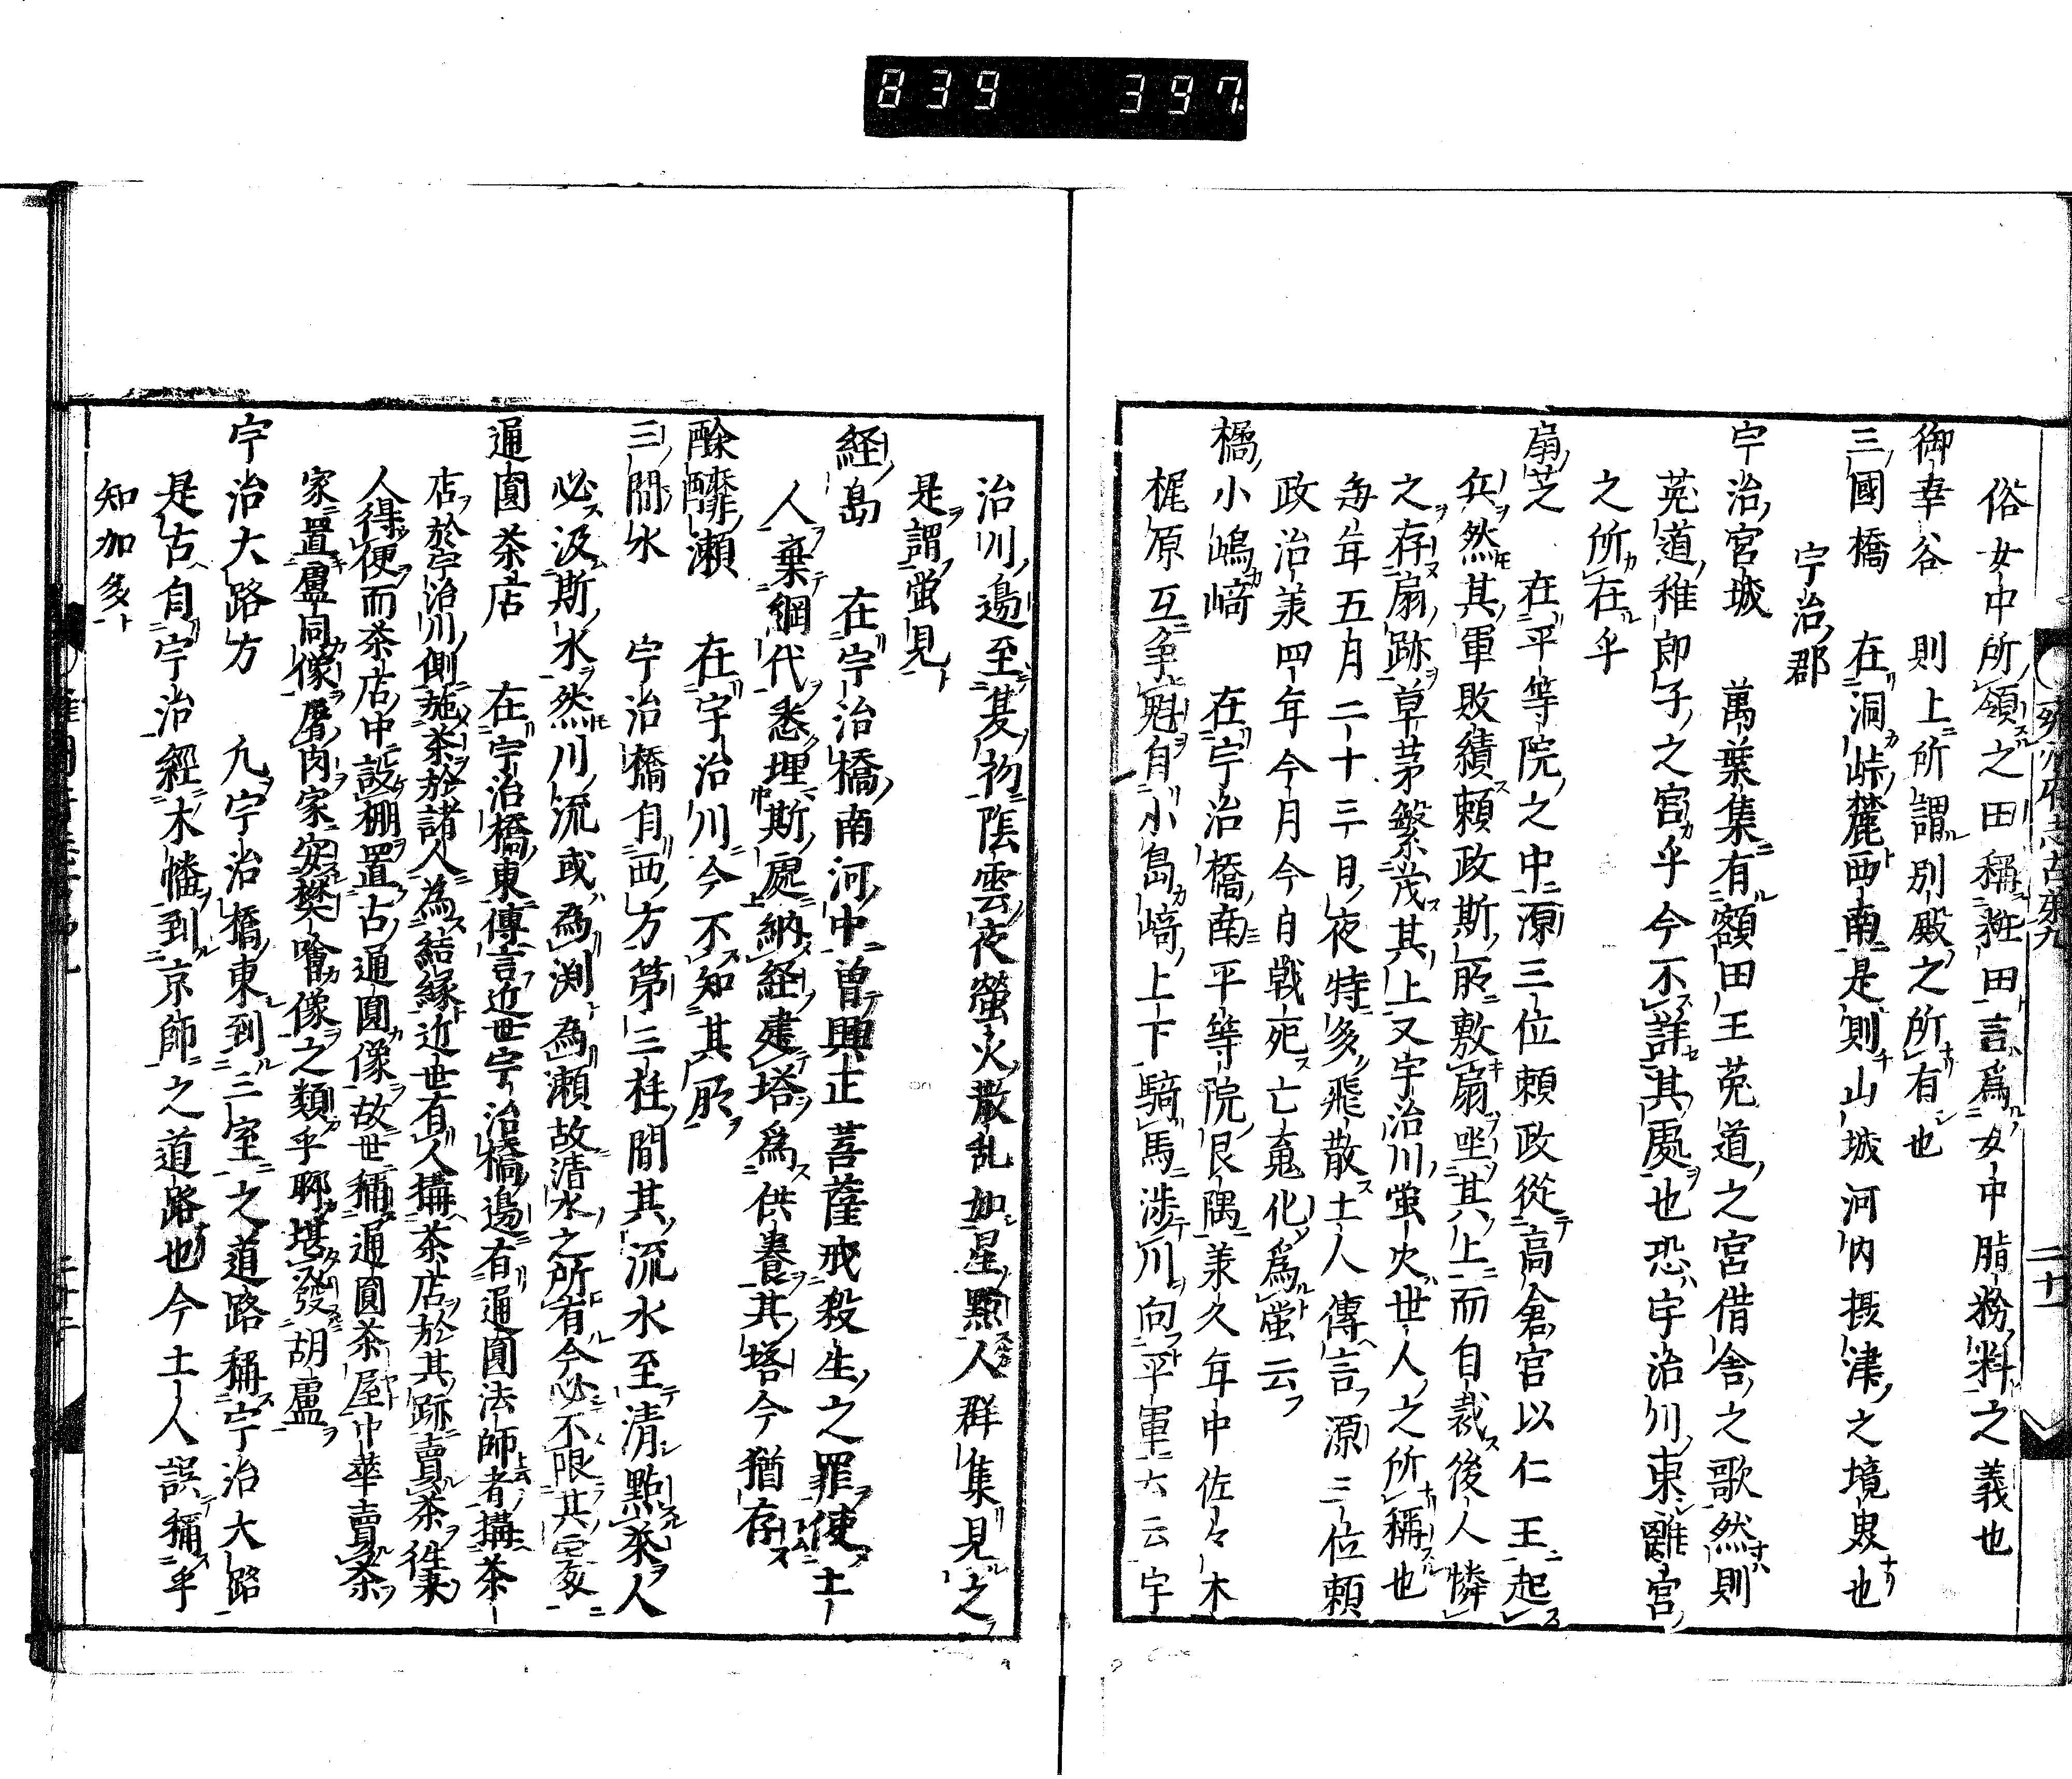 839 397
俗女中所領之田稱粧田言爲女中脂粉料之義也
御幸谷 則上所謂別殿之所有也
三國橋 在洞峠麓西南是則山城河内摂津之境界也
宇治郡
宇治宮城 萬葉集有額田王莵道之宮借舎之歌然則
莵道稚郎子之宮乎今不詳其處也恐宇治川東離宮
之所在乎
扇芝 在平等院之中源三位頼政從高倉宮以仁王起
兵然其軍敗績頼政斯所敷扇坐其上而自裁後人憐
之存扇跡草茅繁茂其上又宇治川蛍火世人之所稱也
毎年五月二十三日夜特多飛散土人傳言源三位頼
政治美四年今月今日戦死亡䰟化爲蛍云
橘小嶋﨑 在宇治橋南平等院艮隅美久年中佐々木
梶原互争魁自小島﨑上下騎馬渉川向平軍六云宇
治川邉至夏初陰雲夜螢火散乱如星點人群集見之
是謂蛍見
経島 在宇治橋南河中曽興正菩薩戒殺生之罪使土
人棄網代悉埋斯處納経建塔爲供養其塔今猶存
醁醾瀬 在宇治川今不知其所
三間水 宇治橋自西方第三柱間其流水至清點茶人
必汲斯水然川流或為渕為瀬故清水之所有今必不限其處
通圓茶店 在宇治橋東傳言近世宇治橋邉有通圓法師者搆茶
店於宇治川側施茶於諸人為結縁近世有人搆茶店於其跡賣茶徃来
人得便而茶店中設棚置古通圓像故世稱通圓茶屋中華賣茶
家置盧同像屠肉家安樊噲像之類乎聊堪發胡盧
宇治大路方 九宇治橋東到三室之道路稱宇治大路
是古自宇治經木幡到京師之道路也今土人誤稱乎
知加多